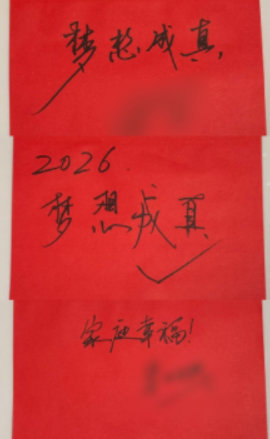 梦想成真
2026.
梦想成真
家庭幸福!